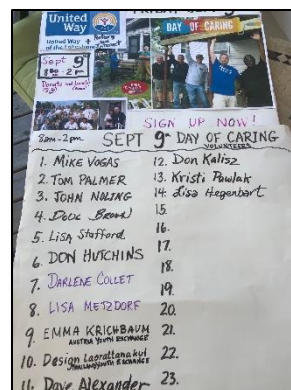 FRIDAY
United
Way
DAY OF CARING
United Way
of the Lakeshore
Rotary
Sept 9
8am - 2pm
SIGN UP NOW!
8am-2pm SEPT 9th DAY OF CARING
VOLUNTEERS
1. MIKE VOGAS
2. TOM PALMER
3. JOHN NOLING
4. Doug Brown
5. LISA Stafford
6. DON HUTCHINS
7. DARLENE COLLET
8. LISA METZDORF
9. EMMA KRICHBAUM
AUSTRIA YOUTH EXCHANGE
10. Design Laorattanakul
THAILAND YOUTH EXCHANGE
11. Dave Alexander
12. Don Kalisz
13. Kristi Pawlak
14. Lisa Hegenbart
15.
16.
17.
18.
19.
20.
21.
22.
23.